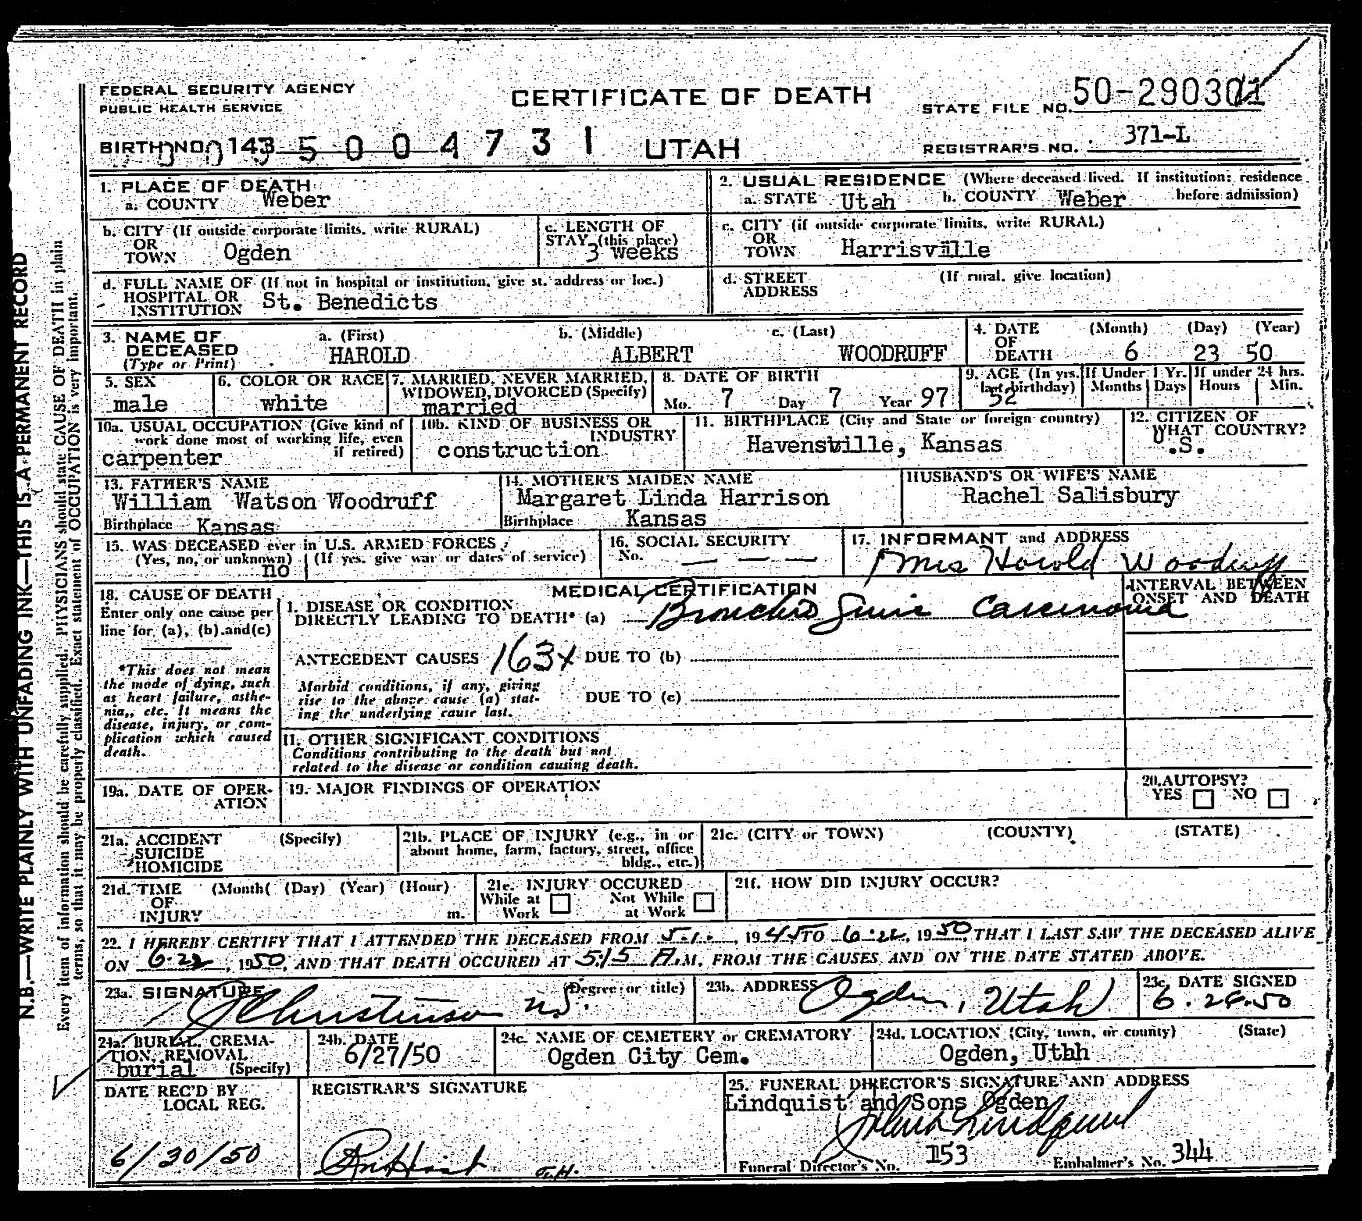 FEDERAL SECURITY AGENCY
PUBLIC HEALTH SERVICE
CERTIFICATE OF DEATH
STATE FILE NO. 50-290301
BIRTH NO. 143 5004731 UTAH
REGISTRAR'S NO. 371-L
1. PLACE OF DEATH
a. COUNTY Weber
2. USUAL RESIDENCE (Where deceased lived. If institution: residence before admission)
a. STATE Utah b. COUNTY Weber
b. CITY (If outside corporate limits, write RURAL)
OR
TOWN Ogden
c. LENGTH OF
STAY (this place)
3 weeks
c. CITY (if outside corporate limits, write RURAL)
OR
TOWN Harrisville
d. FULL NAME OF (If not in hospital or institution, give st. address or loc.)
HOSPITAL OR
INSTITUTION St. Benedicts
d. STREET (If rural, give location)
ADDRESS
3. NAME OF
DECEASED
(Type or Print)
a. (First) b. (Middle) c. (Last)
HAROLD ALBERT WOODRUFF
4. DATE (Month) (Day) (Year)
OF
DEATH 6 23 50
5. SEX
male
6. COLOR OR RACE
white
7. MARRIED, NEVER MARRIED,
WIDOWED, DIVORCED (Specify)
married
8. DATE OF BIRTH
Mo. 7 Day 7 Year 97
9. AGE (In yrs. last birthday)
52
If Under 1 Yr. If under 24 hrs.
Months Days Hours Min.
10a. USUAL OCCUPATION (Give kind of
work done most of working life, even
if retired)
carpenter
10b. KIND OF BUSINESS OR
INDUSTRY
construction
11. BIRTHPLACE (City and State or foreign country)
Havensville, Kansas
12. CITIZEN OF
WHAT COUNTRY?
U.S.
13. FATHER'S NAME
William Watson Woodruff
Birthplace Kansas
14. MOTHER'S MAIDEN NAME
Margaret Linda Harrison
Birthplace Kansas
HUSBAND'S OR WIFE'S NAME
Rachel Salisbury
15. WAS DECEASED ever in U.S. ARMED FORCES?
(Yes, no, or unknown) (If yes, give war or dates of service)
no
16. SOCIAL SECURITY
No. — —
17. INFORMANT and ADDRESS
Mrs Harold Woodruff
18. CAUSE OF DEATH
Enter only one cause per
line for, (a), (b) and (c)
*This does not mean
the mode of dying, such
as heart failure, asthe-
nia, etc. It means the
disease, injury, or com-
plication which caused
death.
MEDICAL CERTIFICATION
1. DISEASE OR CONDITION
DIRECTLY LEADING TO DEATH* (a) Bronchogenic Carcinoma
INTERVAL BETWEEN
ONSET AND DEATH
ANTECEDENT CAUSES 163X DUE TO (b)
Morbid conditions, if any, giving
rise to the above cause (a) stat-
ing the underlying cause last.
DUE TO (c)
11. OTHER SIGNIFICANT CONDITIONS
Conditions contributing to the death but not
related to the disease or condition causing death.
19a. DATE OF OPER-
ATION
19. MAJOR FINDINGS OF OPERATION
20. AUTOPSY?
YES NO
21a. ACCIDENT (Specify)
SUICIDE
HOMICIDE
21b. PLACE OF INJURY (e.g., in or
about home, farm, factory, street, office
bldg., etc.)
21c. (CITY or TOWN) (COUNTY) (STATE)
21d. TIME (Month( (Day) (Year) (Hour)
OF
INJURY m.
21e. INJURY OCCURED
While at Not While
Work at Work
21f. HOW DID INJURY OCCUR?
22. I HEREBY CERTIFY THAT I ATTENDED THE DECEASED FROM 5-1, 1945 TO 6-22, 1950, THAT I LAST SAW THE DECEASED ALIVE
ON 6-22, 1950, AND THAT DEATH OCCURED AT 5:15 A.M. FROM THE CAUSES AND ON THE DATE STATED ABOVE.
23a. SIGNATURE (Degree or title)
Christenson
23b. ADDRESS
Ogden, Utah
23c. DATE SIGNED
24a. BURIAL, CREMA-
TION, REMOVAL
burial (Specify)
24b. DATE
6/27/50
24c. NAME OF CEMETERY or CREMATORY
Ogden City Cem.
24d. LOCATION (City, town, or county) (State)
Ogden, Utbh
DATE REC'D BY
LOCAL REG.
6/30/50
REGISTRAR'S SIGNATURE
25. FUNERAL DIRECTOR'S SIGNATURE AND ADDRESS
Lindquist and Sons Ogden
Funeral Director's No. 153 Embalmer's No. 344
N.B.—WRITE PLAINLY WITH UNFADING INK—THIS IS A PERMANENT RECORD
Every item of information should be carefully supplied. PHYSICIANS should state CAUSE OF DEATH in plain
terms, so that it may be properly classified. Exact statement of OCCUPATION is very important.